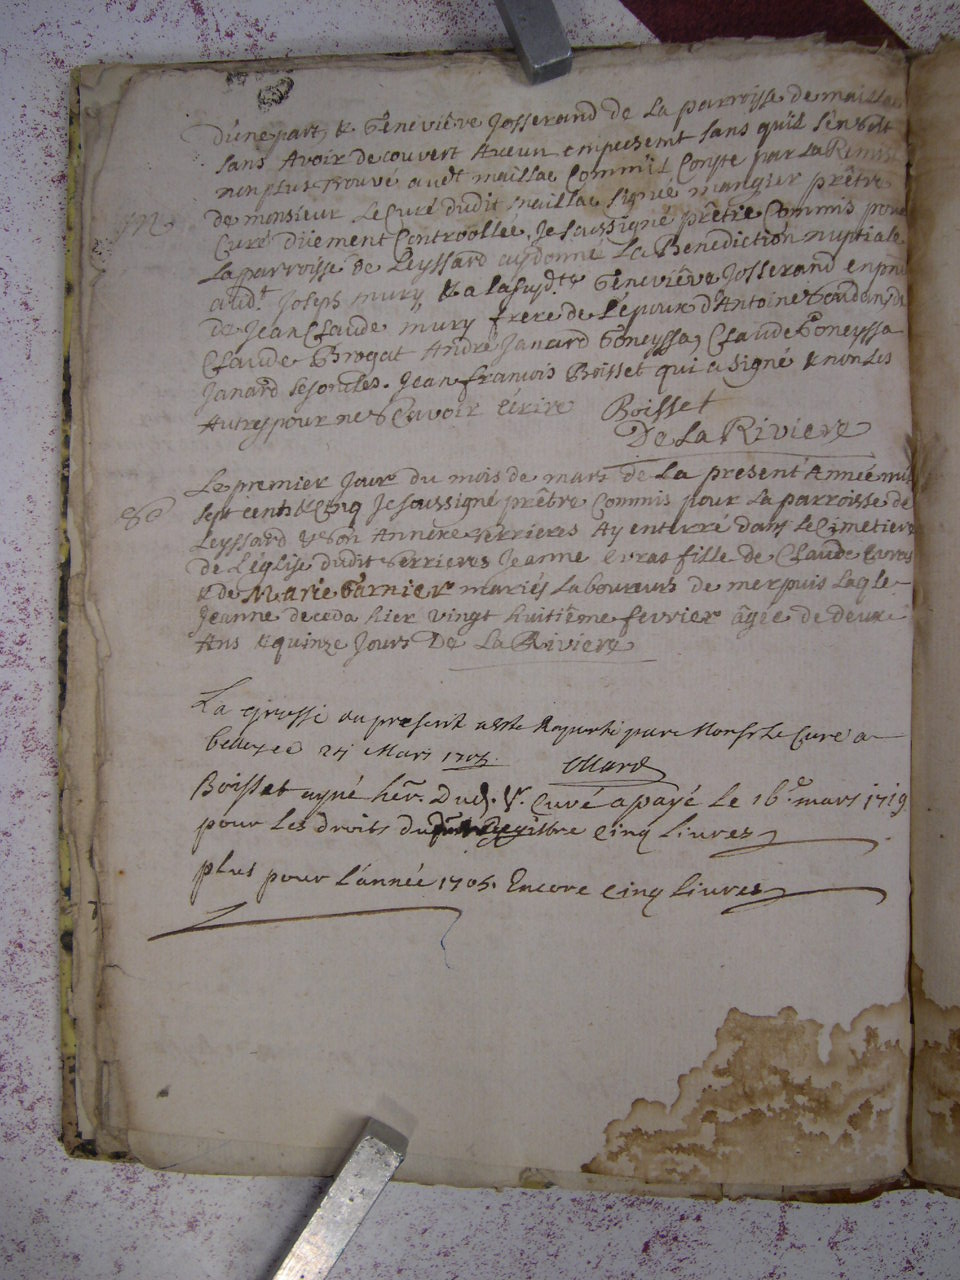 d'une part, & Geneviève Josserand de La parroisse de maillac
sans Avoir decouvert Aucun empechemt sans quil s'en soit
non plus trouvé audt maillac Comm'il Conste par La Remise
de monsieur Le Curé dudit maillac signé mangier prêtre
M
Curé düement Controollée, Je soussigné prêtre Commis pour
La parroisse de Leyssard ay donné La Benediction nuptiale
audt Joseph mury & a la suydte Geneviève Josserand en
de Jean Claude mury frere de L'époux d'Antoine
Claude Brogat André Janard Goneyssa, Claude Goneyssa
Janard ses oncles. Jean francois Boisset qui a signé & non Les
Autres pour ne sçavoir écrire Boisset
De La Riviere
Le premier Jour du mois de mars de La present Année mil
sept cents & Cinq Je soussigné prêtre Commis pour La parroisse de
Leyssard & son Annexe serrieres Ay enterré dans Le Cimetiere
de L'église dudit serrieres Jeanne Evras fille de Claude Evras
& de Marie Garnier mariés Laboureurs de merpuis Laqle
Jeanne deceda hier vingt huitième fevrier âgée de deux
Ans & quinze Jours De La Riviere
La grosse du present a este Raporté par Monsr Le Curé a
belley ce 24 Mars 1705.
Boisset ayné her. Dud. Sr. Curé a payé Le 16e mars 1719
pour Les droits du Registre Cinq Livres
plus pour L'année 1705. Encore Cinq Livres